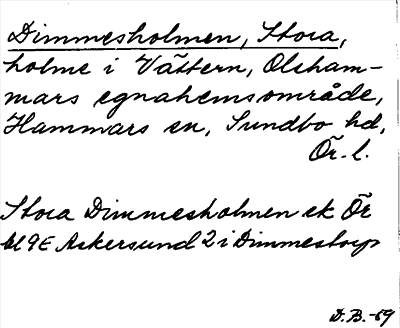 Dimmesholmen, Stora,
holme i Vättern, Olsham-
mars egnahemsområde,
Hammars sn, Sundbo hd,
Ör. l.
Stora Dimmesholmen ek Ör
bl 9E Askersund 2 i Dimmestorp
D.B.-69